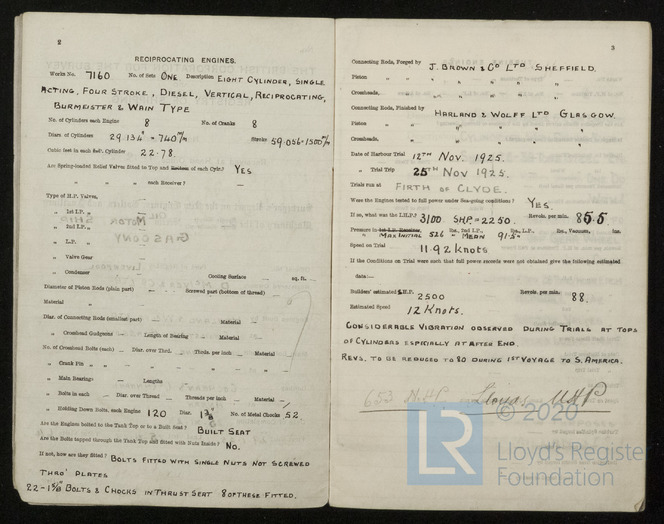 2
RECIPROCATING ENGINES.
Works No. 7160 No. of Sets ONE Description EIGHT CYLINDER, SINGLE
ACTING, FOUR STROKE, DIESEL, VERTICAL, RECIPROCATING,
BURMEISTER & WAIN TYPE
No. of Cylinders each Engine 8 No. of Cranks 8
Diars. of Cylinders 29.134" = 740 m/m Stroke 59.056=1500 m/m
Cubic feet in each Cylinder 22.78.
Are Spring-loaded Relief Valves fitted to Top and Bottom of each Cylr.? YES
" " " each Receiver? —
Type of H.P. Valves,
" 1st I.P. "
" 2nd I.P. "
" L.P. "
" Valve Gear —
" Condenser Cooling Surface — sq. ft.
Diameter of Piston Rods (plain part) — Screwed part (bottom of thread) —
Material "
Diar. of Connecting Rods (smallest part) — Material —
" Crosshead Gudgeons — Length of Bearing Material —
No. of Crosshead Bolts (each) — Diar. over Thrd. — Thrds. per inch — Material
" Crank Pin " " " " "
" Main Bearings — Lengths
" Bolts in each — Diar. over Thread — Threads per inch — Material
" Holding Down Bolts, each Engine 120 Diar. No. of Metal Chocks 52.
Are the Engines bolted to the Tank Top or to a Built Seat? BUILT SEAT
Are the Bolts tapped through the Tank Top and fitted with Nuts Inside? NO.
If not, how are they fitted? BOLTS FITTED WITH SINGLE NUTS NOT SCREWED
THRO' PLATES
BOLTS & CHOCKS IN THRUST SEAT 8 OF THESE FITTED.
3
Connecting Rods, Forged by J. BROWN & CO LTD SHEFFIELD.
Piston " " " " " "
Crossheads, " " " " "
Connecting Rods, Finished by HARLAND & WOLFF LTD GLASGOW.
Piston " " " " "
Crossheads, " " " "
Date of Harbour Trial 12TH NOV. 1925.
" Trial Trip 25TH NOV 1925.
Trials run at FIRTH OF CLYDE.
Were the Engines tested to full power under Sea-going conditions? YES.
If so, what was the I.H.P.? 3100. SHP = 2250. Revols. per min. 85.5
Pressure in 1st I.P. Receiver, lbs., 2nd I.P., lbs., L.P., lbs., Vacuum, ins.
MAX INITIAL 526 " MEAN 91.5
Speed on Trial 11.92 KNOTS
If the Conditions on Trial were such that full power records were not obtained give the following estimated
data:—
Builders' estimated I.H.P. 2500 Revols. per min. 88.
Estimated Speed 12 KNOTS.
CONSIDERABLE VIBRATION OBSERVED DURING TRIALS AT TOPS
OF CYLINDERS ESPICIALLY AT AFTER END.
REVS. TO BE REDUCED TO 80 DURING 1ST VOYAGE TO S. AMERICA.
653 NHP Lloyds NHP
© 2020
LR
Lloyd's Register
Foundation